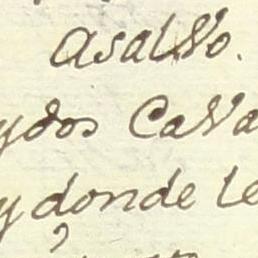 asalvo.
ydos Cava
y donde le